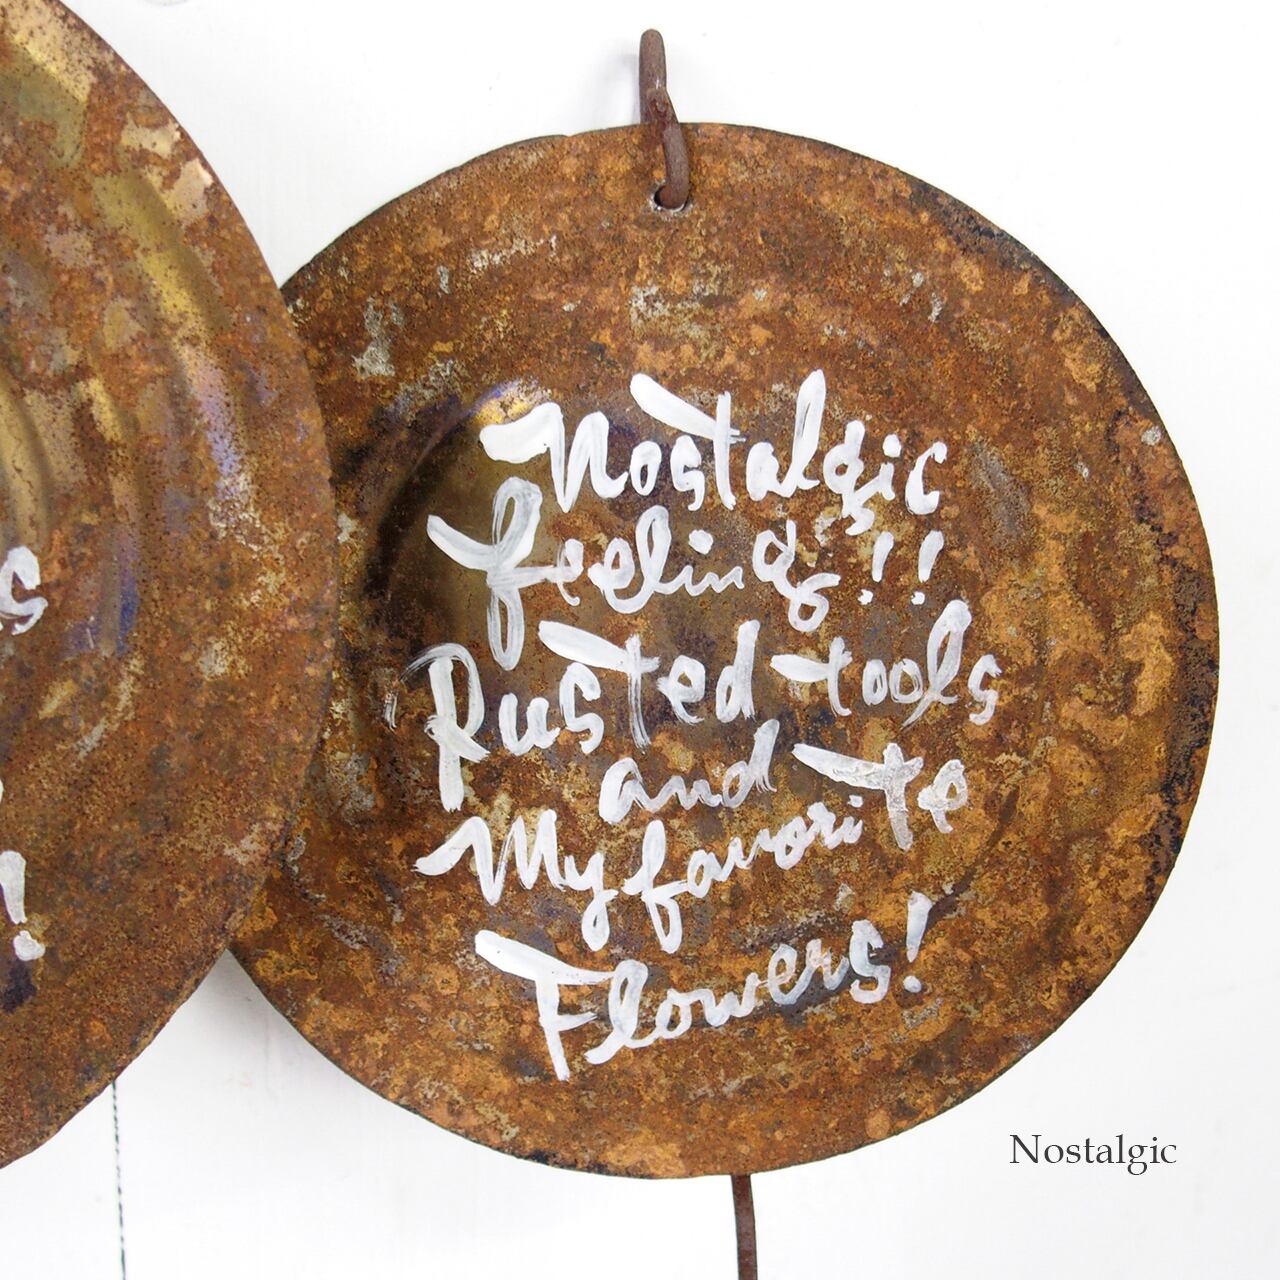 Nostalgic
feelings!!
Rusted tools
and
My favorite
Flowers!
s
!
Nostalgic